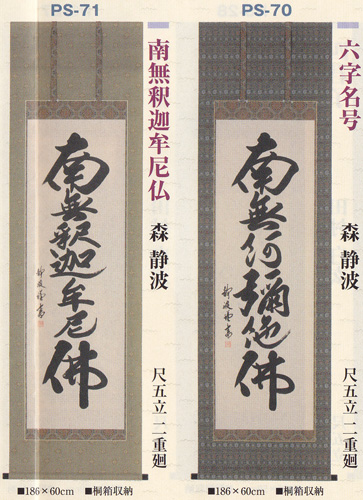 PS-70
六字名号
森 静波
尺五立 二重廻
南無阿彌陀佛
■186×60cm ■桐箱収納
PS-71
南無釈迦牟尼仏
森 静波
尺五立 二重廻
南無釈迦牟尼佛
■186×60cm ■桐箱収納